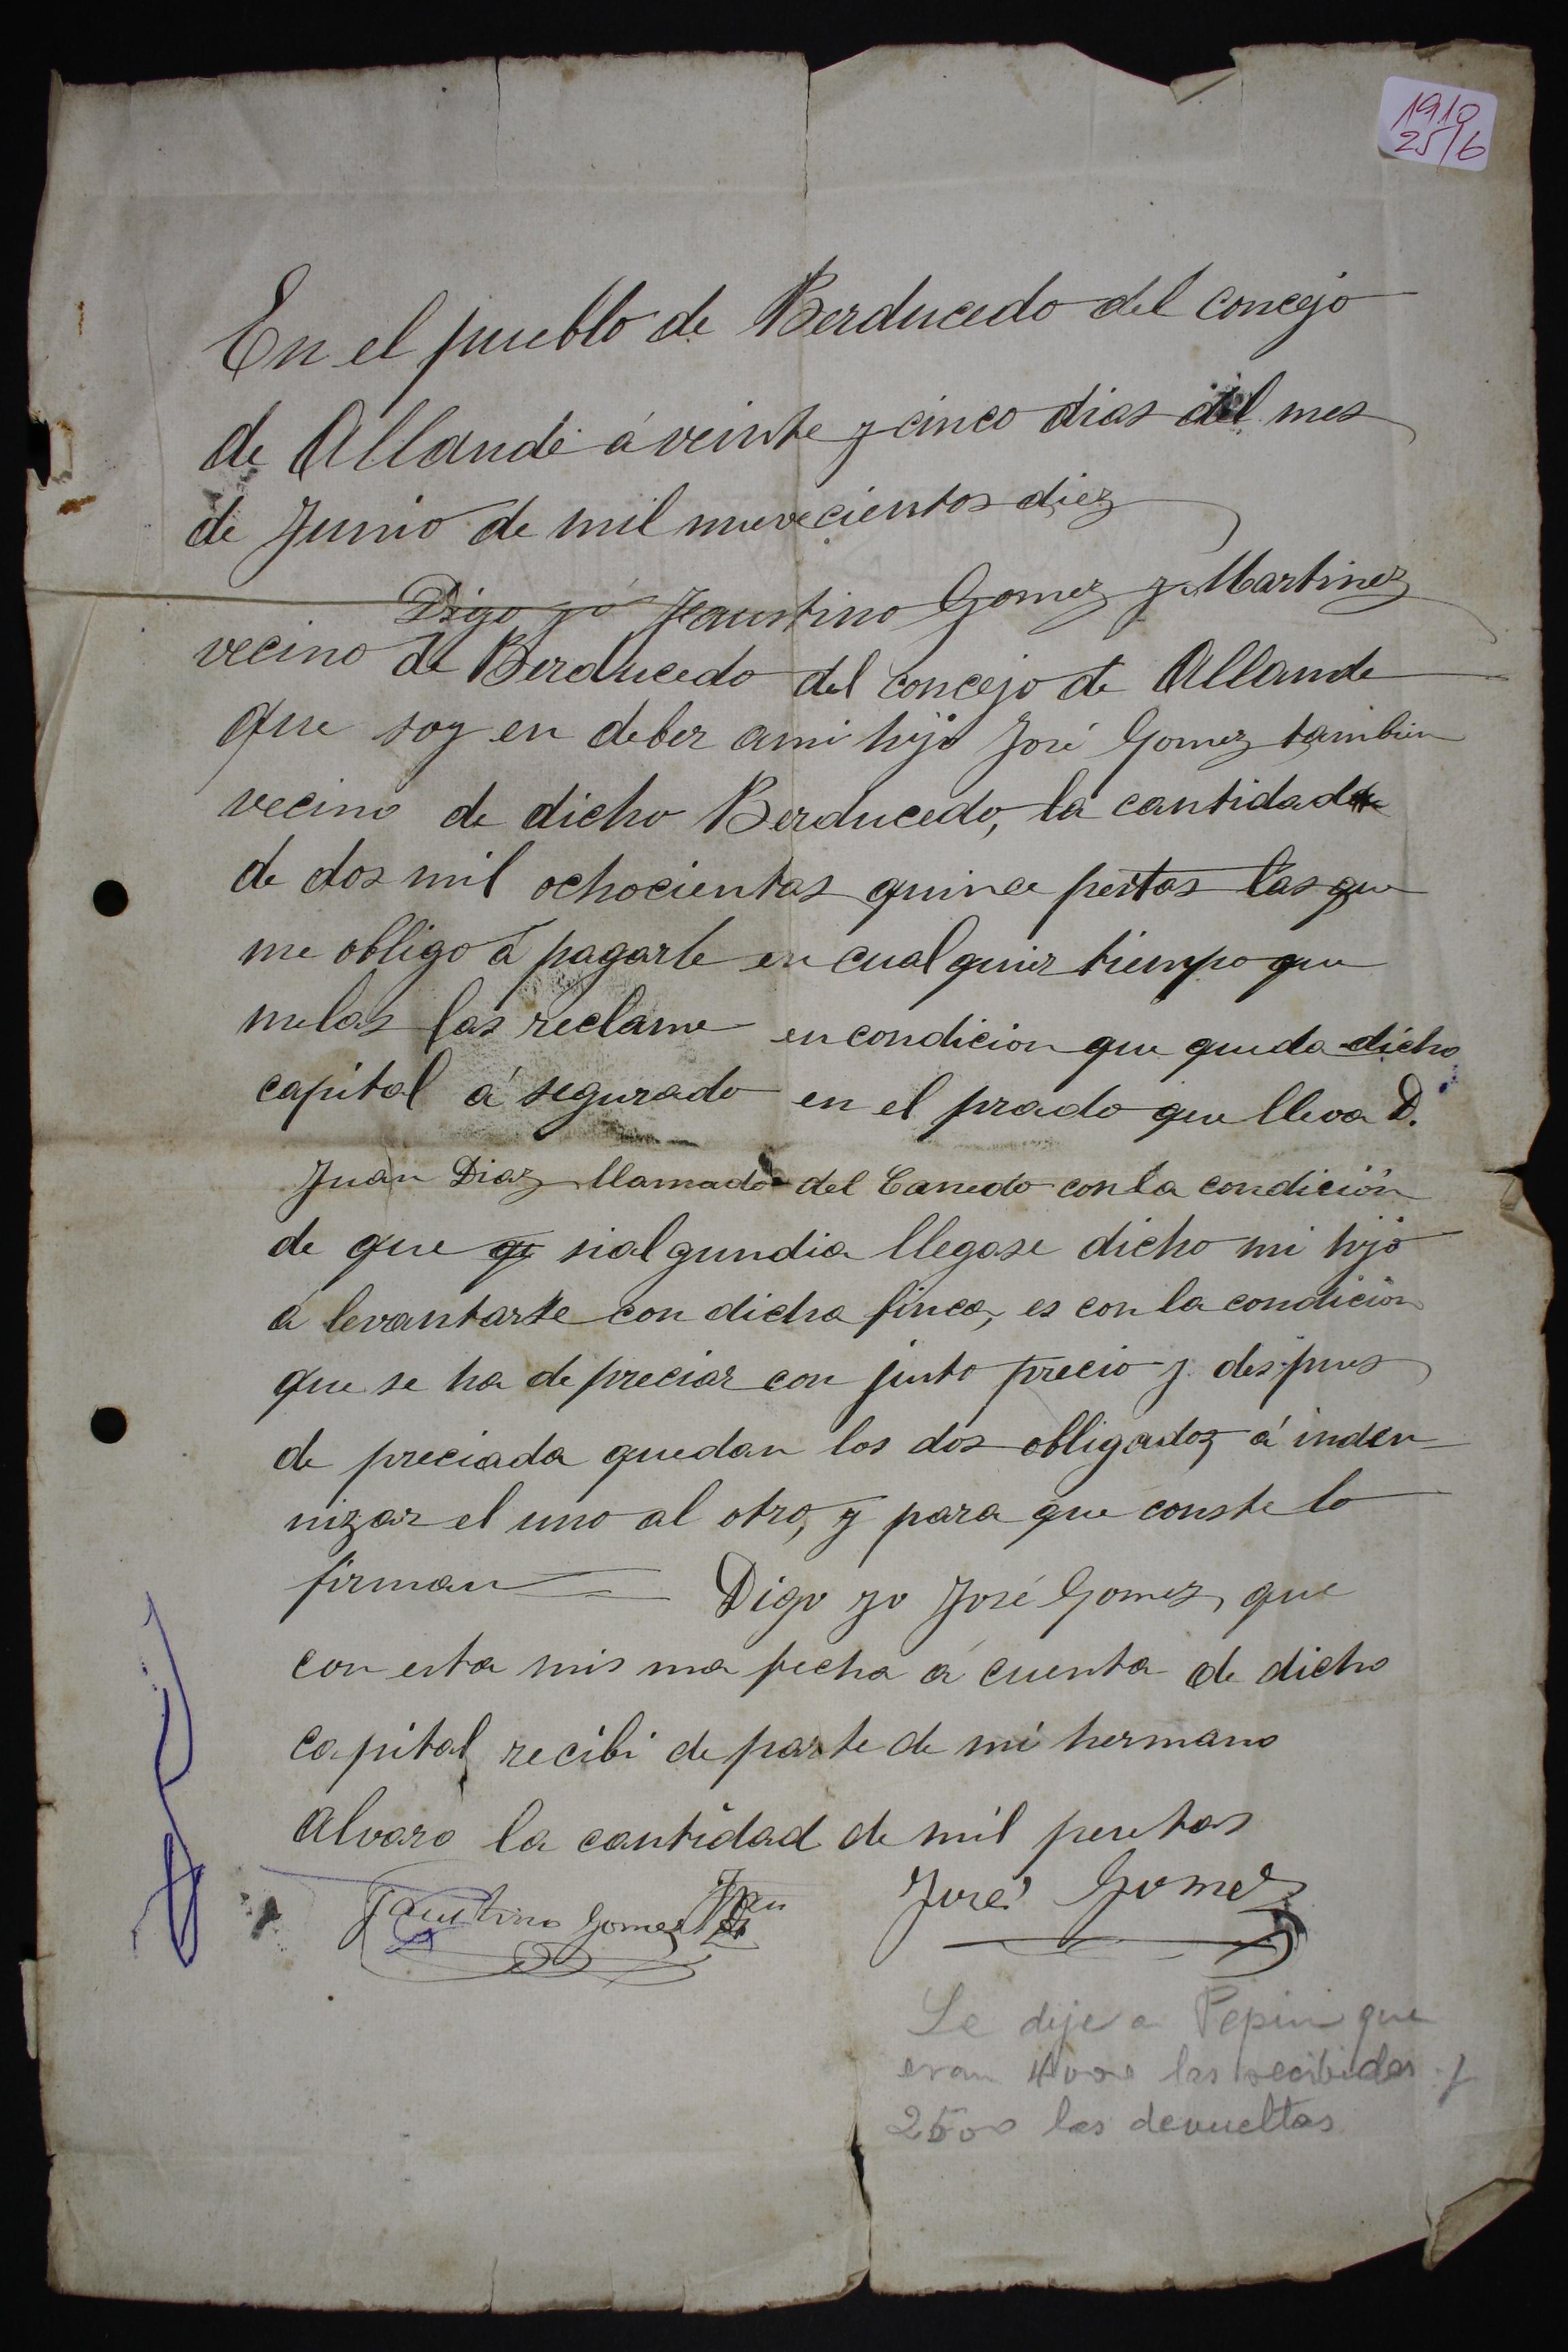 1910
25/6
En el pueblo de Berducedo del concejo
de Allande á veinte y cinco dias del mes
de Junio de mil nuevecientos diez
Digo yó Faustino Gomez y Martinez
vecino de Berducedo del concejo de Allande
que soy en deber ami hijo José Gomez tambien
vecino de dicho Berducedo, la cantidad
de dos mil ochocientas quince pestas las que
me obligo á pagarle en cual quier tiempo que
melas las reclame en condicion que queda dicho
capital á segurado en el prado que lleva D.
Juan Diaz llamado del Canedo con la condición
de que qe si algundia llegase dicho mi hijo
á levantarse con dicha finca, es con la condicion
que se ha de preciar con justo precio y despues
de preciada quedan los dos obligados á indem-
nizar el uno al otro, y para que conste lo
firman = Digo yo José Gomez, que
con esta mis ma fecha á cuenta de dicho
capital recibi de parte de mi hermano
Alvaro la cantidad de mil pesetas
Faustino Gomez José Gomez
Le dije a Pepin que
eran 4000 las recibidas y
2500 las devueltas